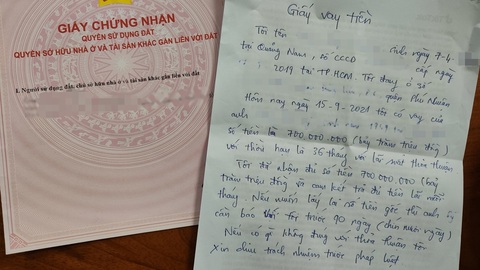 GIẤY CHỨNG NHẬN
QUYỀN SỬ DỤNG ĐẤT
QUYỀN SỞ HỮU NHÀ Ở VÀ TÀI SẢN KHÁC GẮN LIỀN VỚI ĐẤT
I. Người sử dụng đất, chủ sở hữu nhà ở và tài sản khác gắn liền với đất
Giấy vay tiền
Tôi tên sinh ngày 7-4
tại Quảng Nam, số CCCD cấp ngày
2019 tại TP HCM. Tôi đang ở số
quận Phú Nhuận
Hôm nay ngày 15-9-2021 tôi có vay của
anh
số tiền là 700.000.000 (bảy trăm triệu đồng)
với thời hạn là 36 tháng với lãi suất thỏa thuận
Tôi đã nhận đủ số tiền 700.000.000 (bảy
trăm triệu đồng) và cam kết trả đủ tiền lãi mỗi
tháng. Nếu muốn lấy lại số tiền gốc thì anh
cần báo tôi trước 90 ngày (chín mươi ngày)
Nếu có gì không đúng với thỏa thuận tôi
xin chịu trách nhiệm trước pháp luật